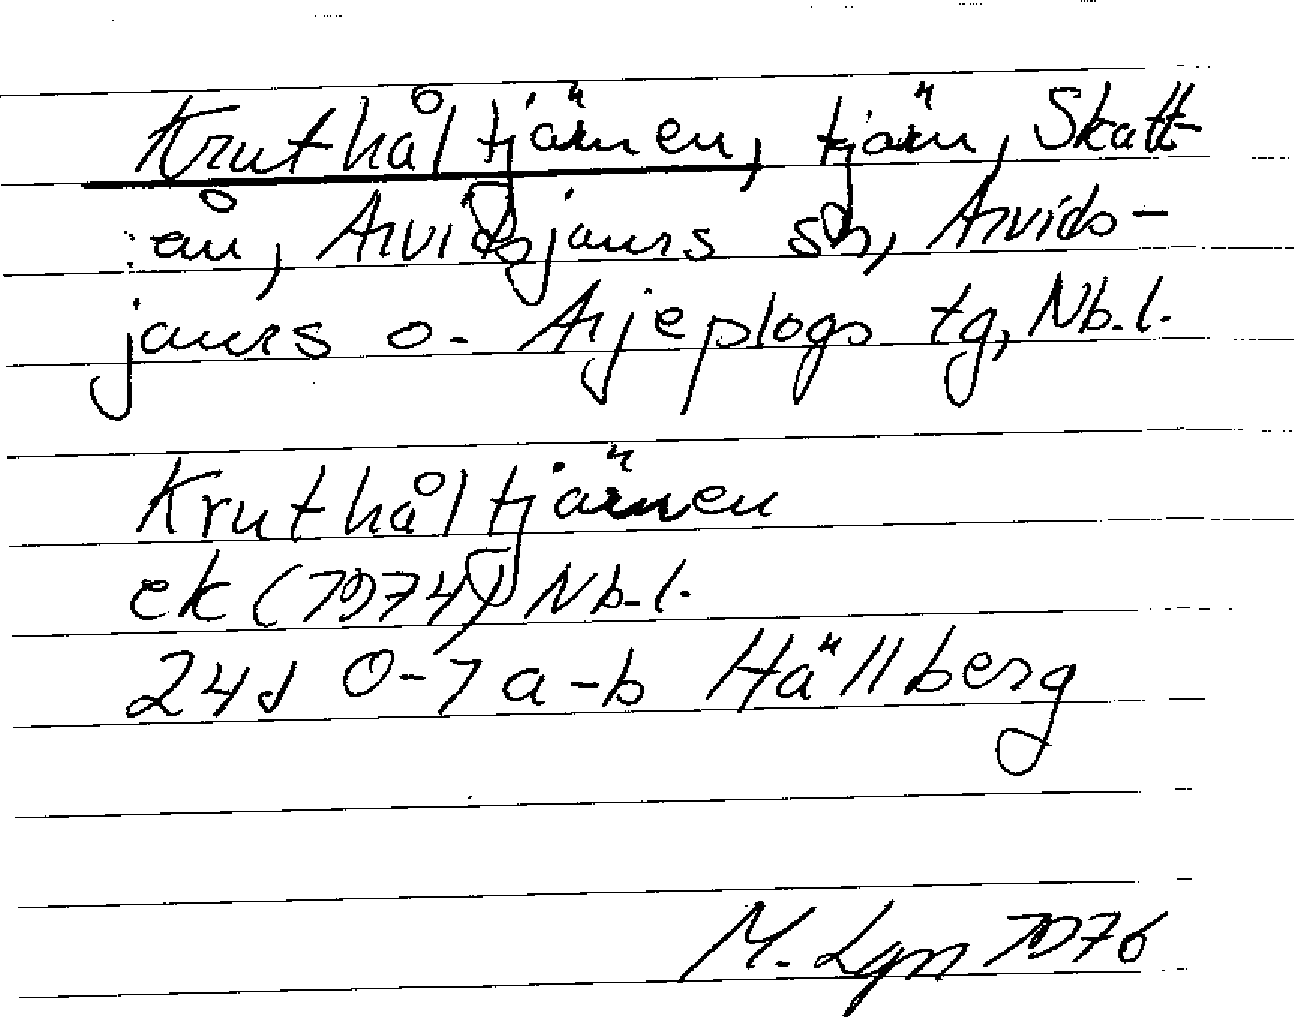 Kruthåltjärnen, tjärn, Skatt-
ån, Arvidsjaurs sn, Arvids-
jaurs o. Arjeplogs tg, Nb.l.
Kruthåltjärnen
ek (1974) Nb.l.
24J 0-1 a-b Hällberg
M. Lgn 1976